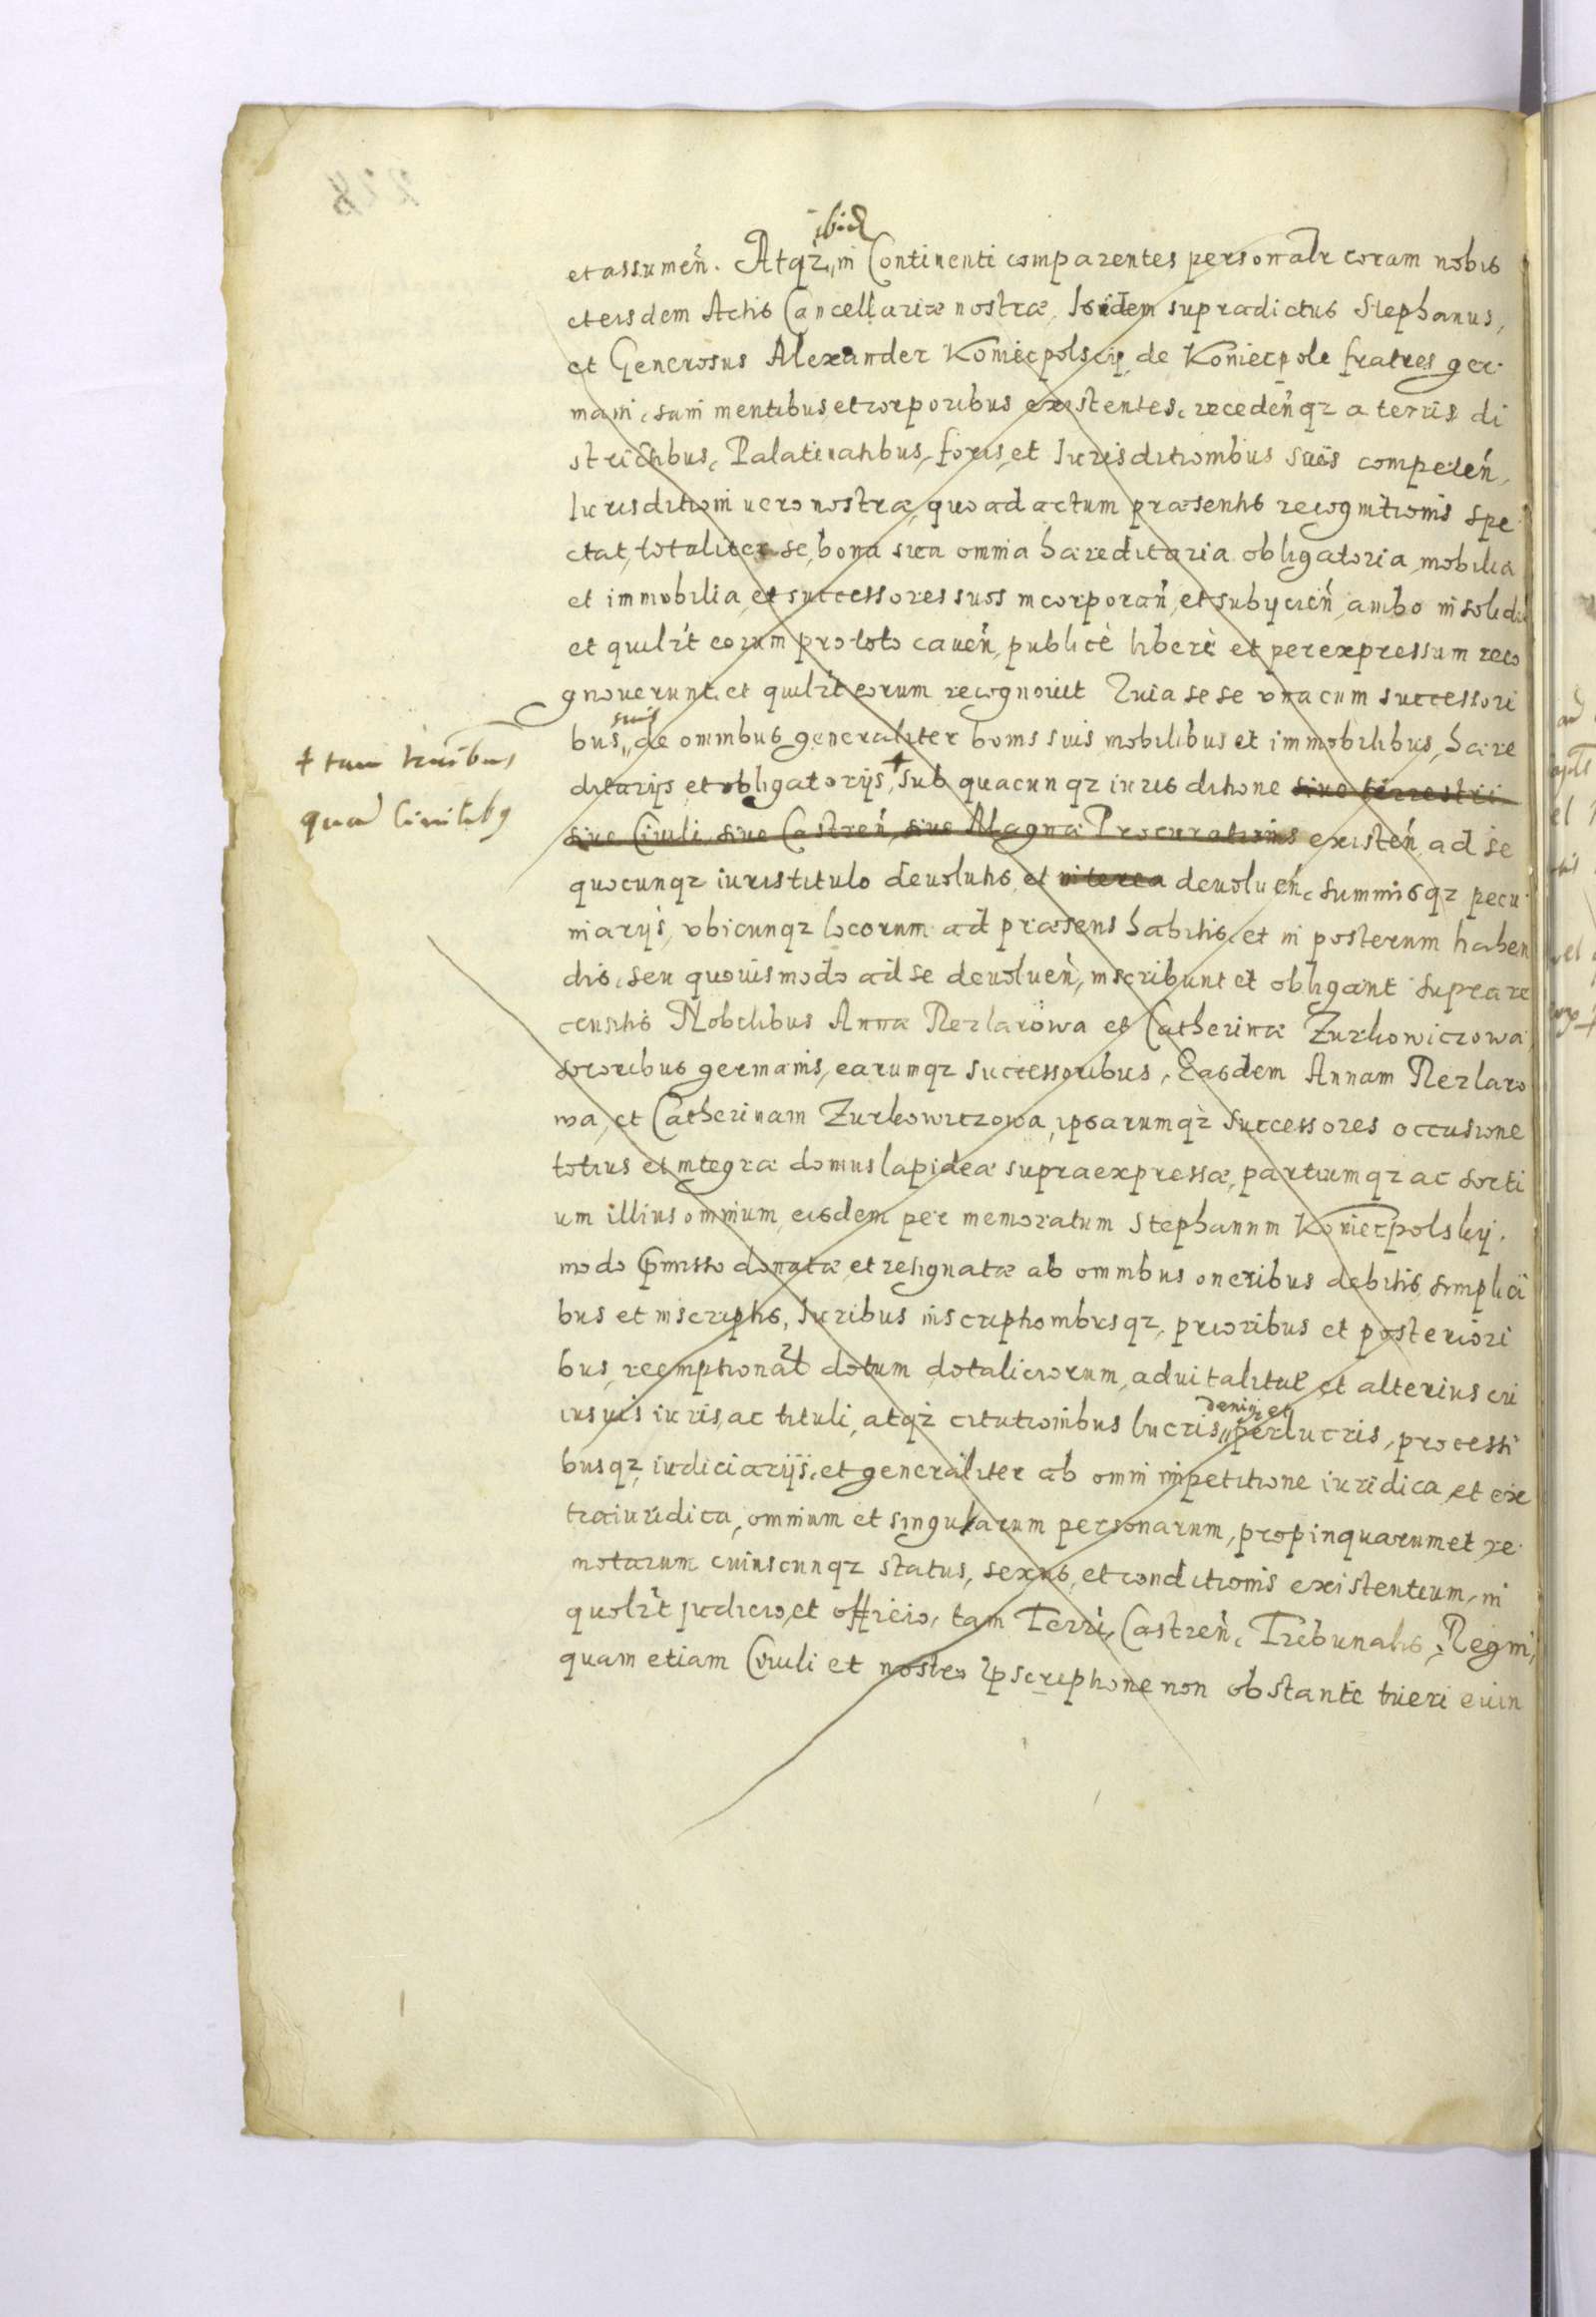 ibid
et assumen̄. Atqz,, in Continenti comparentes personalr coram nobis
et eisdem Actis Cancellariæ nostræ, Isidem supradictus Stephanus,
et Generosus Alexander Koniecpolscÿ, de Koniecpole fratres ger
mani, sani mentibus et corporibus existentes, recedeń qz a terris di
strictibus, Palatinatibus, foris, et Iurisditionibus suis competeń,
Iurisditioni uero nostræ, quo ad actum præsentis recognitionis spe
ctat, totaliter se, bona sua omnia hæreditaria obligatoria, mobilia
et immobilia, et successores suos incorporań, et subijcień, ambo in solidū
et quilzt eorum pro toto caueń, publicè liberè et per expressum reco
gnouerunt, et quilzt eorum recognouit Quia se se vna cum successori
suis
bus,, de omnibus generaliter bonis suis mobilibus et immobilibus, hære
ditarijs et obligatorijs, + sub quacunqz iurisditione siue terrestri
+ tam
quam Ciuilibus
siue Ciuili, siue Castreń, siue Magnæ Procurationis existeń, ad se
quocunqz iuris titulo deuolutis, et interea deuolueń, summisqz pecu
niarijs, vbicunqz locorum ad præsens habitis, et in posterum haben
dis, seu quouis modo ad se deuolueń, inscribunt et obligant supra re
censitis Nobilibus Annæ Rezlarowa et Catherinæ Zurkowiczowa
sororibus germanis, earumqz successoribus, Easdem Annam Rezlaro
wa, et Catherinam Zurkowiczowa, ipsarumqz successores occasione
totius et integræ domus lapideæ supra expressæ, partiumqz ac sorti
um illius omnium, eisdem per memoratum Stephanum Koniecpolskij.
modo p̄misso donatæ, et resignatæ ab omnibus oneribus debitis, simplici
bus et inscriptis, Iuribus inscriptionibusqz, prioribus et posteriori
bus, reemptionalz dotum, dotalitiorum, aduitalitat et alterius cu
deniqz et
iusuis iuris, ac tituli, atqz citationibus lucris,, perlucris, processi
busqz, iudiciarijs, et generaliter ab omni impetitione iuridica, et ex
traiuridica, omnium et singularum personarum, propinquarum et re
motarum cuiuscunqz status, sexus, et conditionis existentium, in
quolzt judicio, et officio, tam Terri, Castreń, Tribunalis, Regni,
quam etiam Ciuili et nostro p̄scriptione non obstante tueri euin